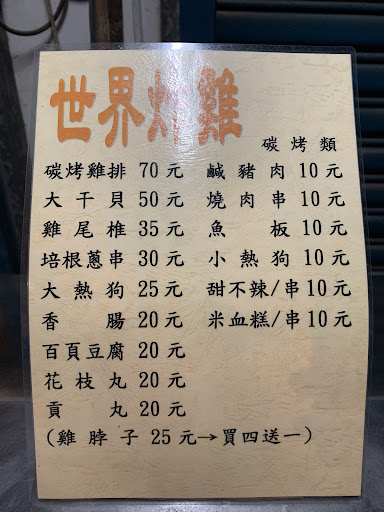 世界炸雞
碳烤類
碳烤雞排 70元 鹹豬肉 10元
大干貝 50元 燒肉串 10元
雞尾椎 35元 魚板 10元
培根蔥串 30元 小熱狗 10元
大熱狗 25元 甜不辣/串 10元
香腸 20元 米血糕/串 10元
百頁豆腐 20元
花枝丸 20元
貢丸 20元
(雞脖子 25元→買四送一)